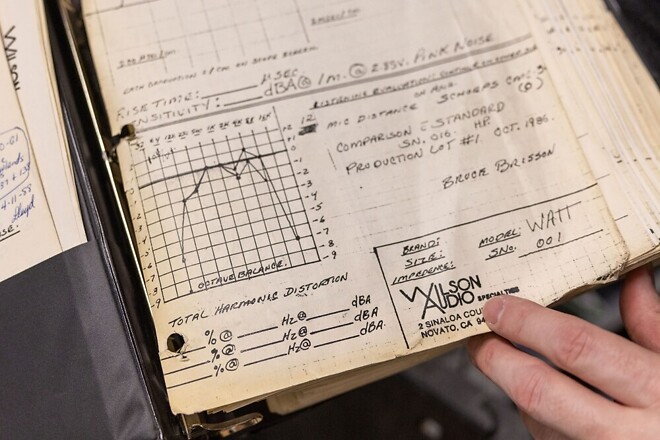 EACH GRADUATION = / CM. ON SCOPE SCREEN.
RISE TIME: ______ µSEC.
SENSITIVITY: ______ dBA @ 1m. @ 2.83V. PINK NOISE
LISTENING EVALUATION:
MIC DISTANCE ON AXIS
SCHOEPS CMC-3
COMPARISON STANDARD
SN. 016. HP
PRODUCTION LOT #1. OCT. 1986.
BRUCE BRISSON
+2
+1
0
-1
-2
-3
-4
-5
-6
-7
-8
-9
OCTAVE BALANCE.
TOTAL HARMONIC DISTORTION
% @ ______ Hz @ ______ dBA
% @ ______ Hz @ ______ dBA
% @ ______ Hz @ ______ dBA.
BRAND:
SIZE:
IMPEDENCE:
MODEL: WATT
SNO. 001
WILSON
AUDIO SPECIALTIES
2 SINALOA COU
NOVATO, CA 94
WILSON